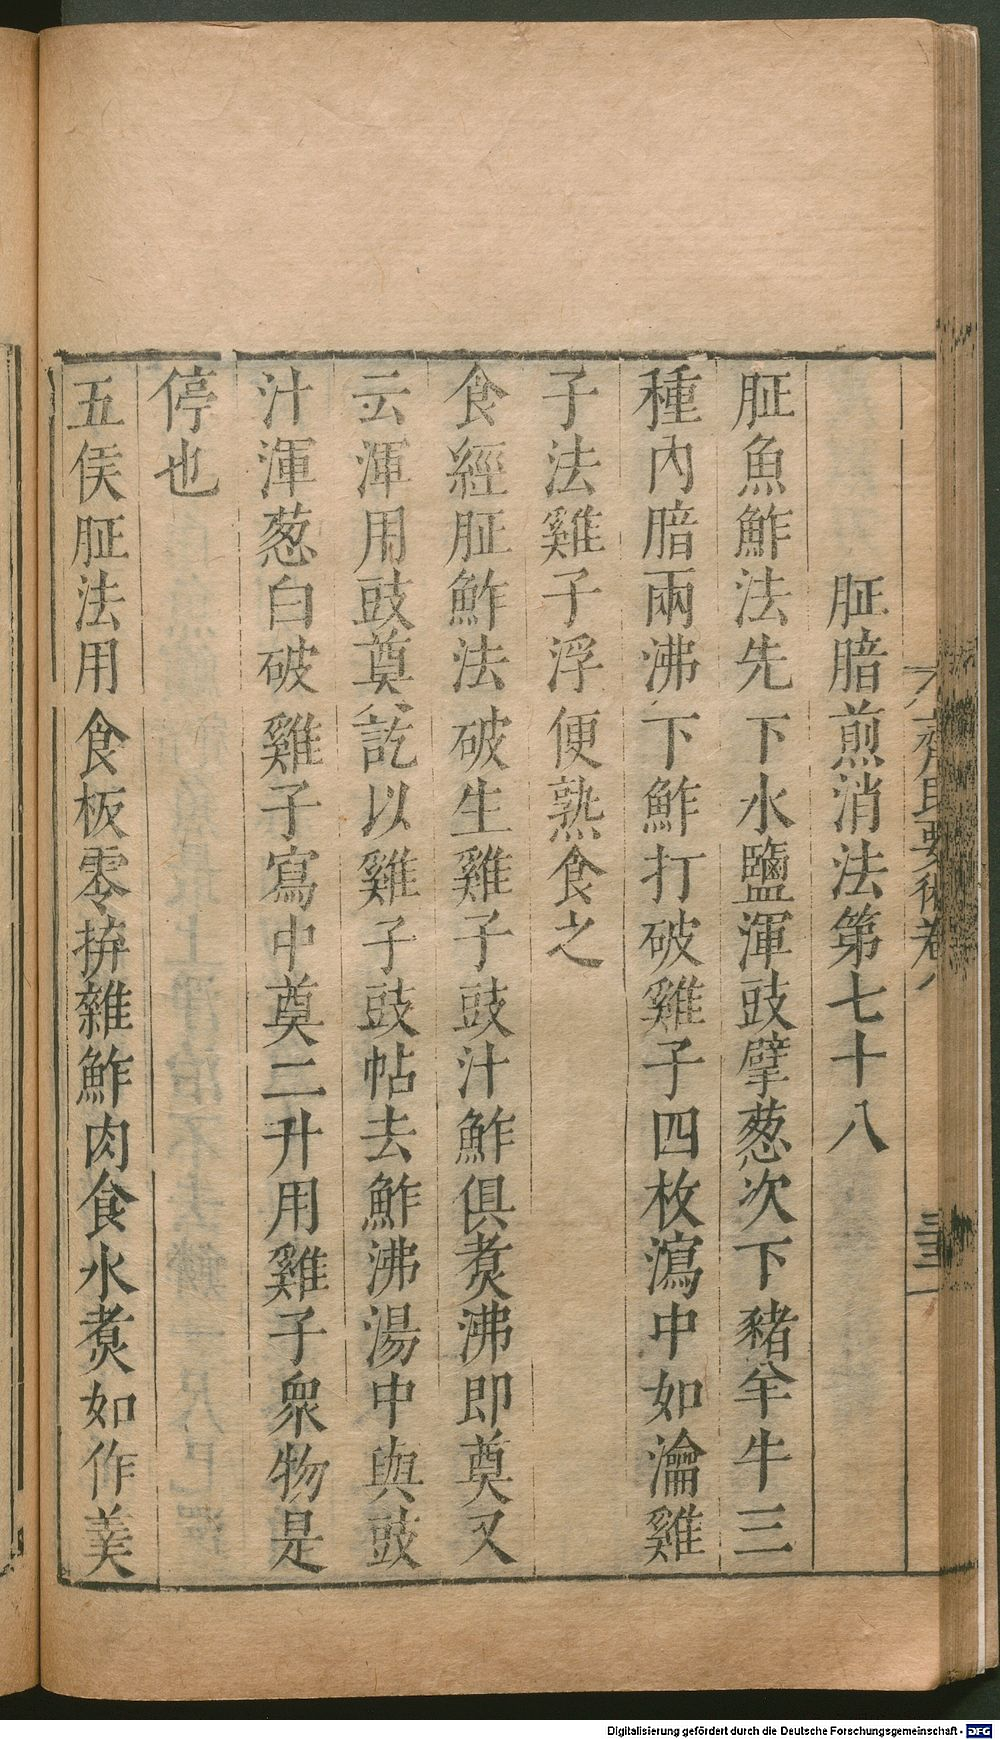 齊民要術卷八
三十一
胚腤煎消法第七十八
胚魚鮓法先下水鹽渾豉擘葱次下豬羊牛三
種內腤兩沸下鮓打破雞子四枚瀉中如瀹雞
子法雞子浮便熟食之
食經胚鮓法破生雞子豉汁鮓俱煑沸即奠又
云渾用豉奠訖以雞子豉帖去鮓沸湯中與豉
汁渾葱白破雞子寫中奠二升用雞子衆物是
停也
五侯胚法用食板零揜雜鮓肉食水煑如作羙
Digitalisierung gefördert durch die Deutsche Forschungsgemeinschaft - DFG